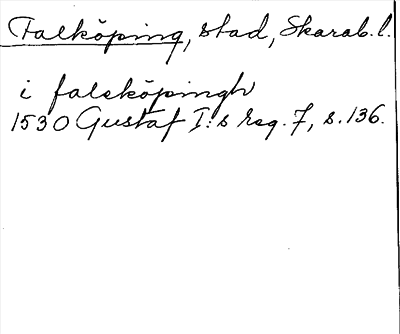 Falköping, stad, Skarab. l.
i faleköpingh
1530 Gustaf I:s reg. 7, s. 136.